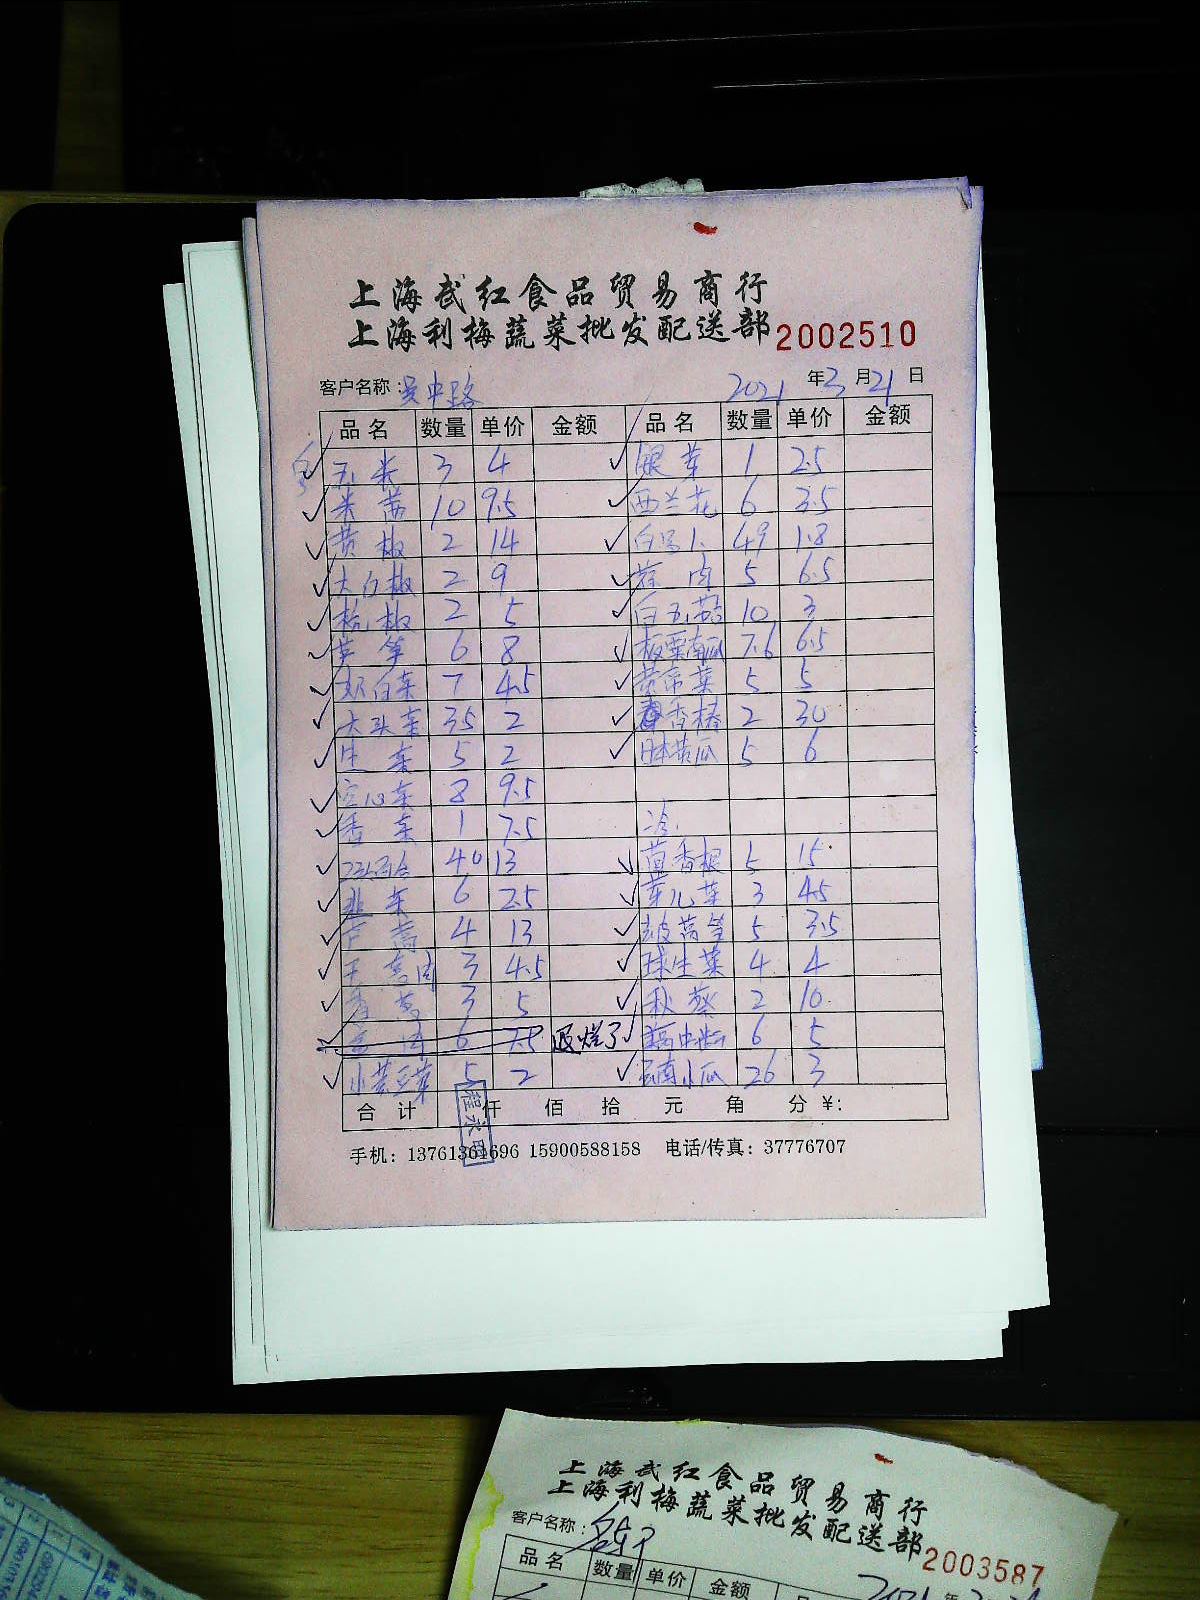 上海武红食品贸易商行
上海利梅蔬菜批发配送部 2002510
客户名称：吴中路 2021年3月21日
品名 数量 单价 金额 品名 数量 单价 金额
玉米 3 4 银芽 1 2.5
米茜 10 9.5 西兰花 6 3.5
黄椒 2 14 49 1.8
大红椒 2 9 蒜肉 5 6.5
杭椒 2 5 白玉菇 10 3
芦笋 6 8 板栗南瓜 7.6 6.5
奶白菜 7 4.5 黄帝菜 5 5
大头菜 35 2 香椿 2 30
生菜 5 2 日本黄瓜 5 6
空心菜 8 9.5
香菜 1 7.5 冷
40 13 茴香根 5 15
韭菜 6 2.5 芽儿菜 3 4.5
芦蒿 4 13 莴笋 5 3.5
3 4.5 球生菜 4 4
香芹 3 5 秋葵 2 10
6 7.5 退烂了 6 5
小黄豆芽 5 2 云南小瓜 26 3
合计 仟 佰 拾 元 角 分 ¥:
程永
手机：13761361696 15900588158 电话/传真：37776707
上海武红食品贸易商行
上海利梅蔬菜批发配送部 2003587
客户名称：
2021年
品名 数量 单价 金额